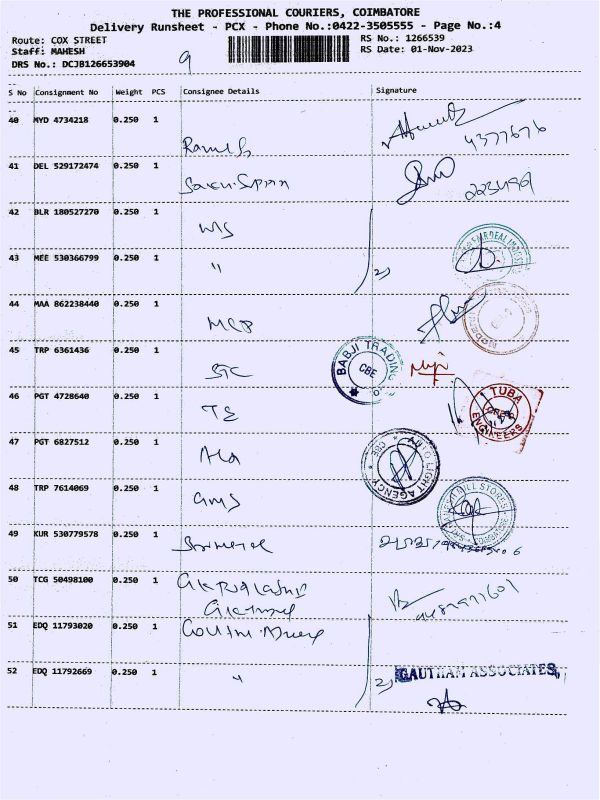 THE PROFESSIONAL COURIERS, COIMBATORE
Delivery Runsheet - PCX - Phone No.:0422-3505555 - Page No.:4
Route: COX STREET
RS No.: 1266539
Staff: MAHESH
RS Date: 01-Nov-2023
DRS No.: DCJB126653904
9
S No Consignment No Weight PCS Consignee Details Signature
40 MYD 4734218 0.250 1
Ramesh
4377676
41 DEL 529172474 0.250 1
42 BLR 180527270 0.250 1
WS
43 MEE 530366799 0.250 1 "
2)
44 MAA 862238440 0.250 1
MCB
45 TRP 6361436 0.250 1
STC
BABJI TRADING CO.
CBE
46 PGT 4728640 0.250 1
TE
TUBA ENGINEERS
47 PGT 6827512 0.250 1
Ala
AUTO LIGHT AGENCY
CBE
48 TRP 7614069 0.250 1
GMS
49 KUR 530779578 0.250 1
50 TCG 50498100 0.250 1
51 EDQ 11793020 0.250 1
52 EDQ 11792669 0.250 1 "
2)
GAUTHAM ASSOCIATES,